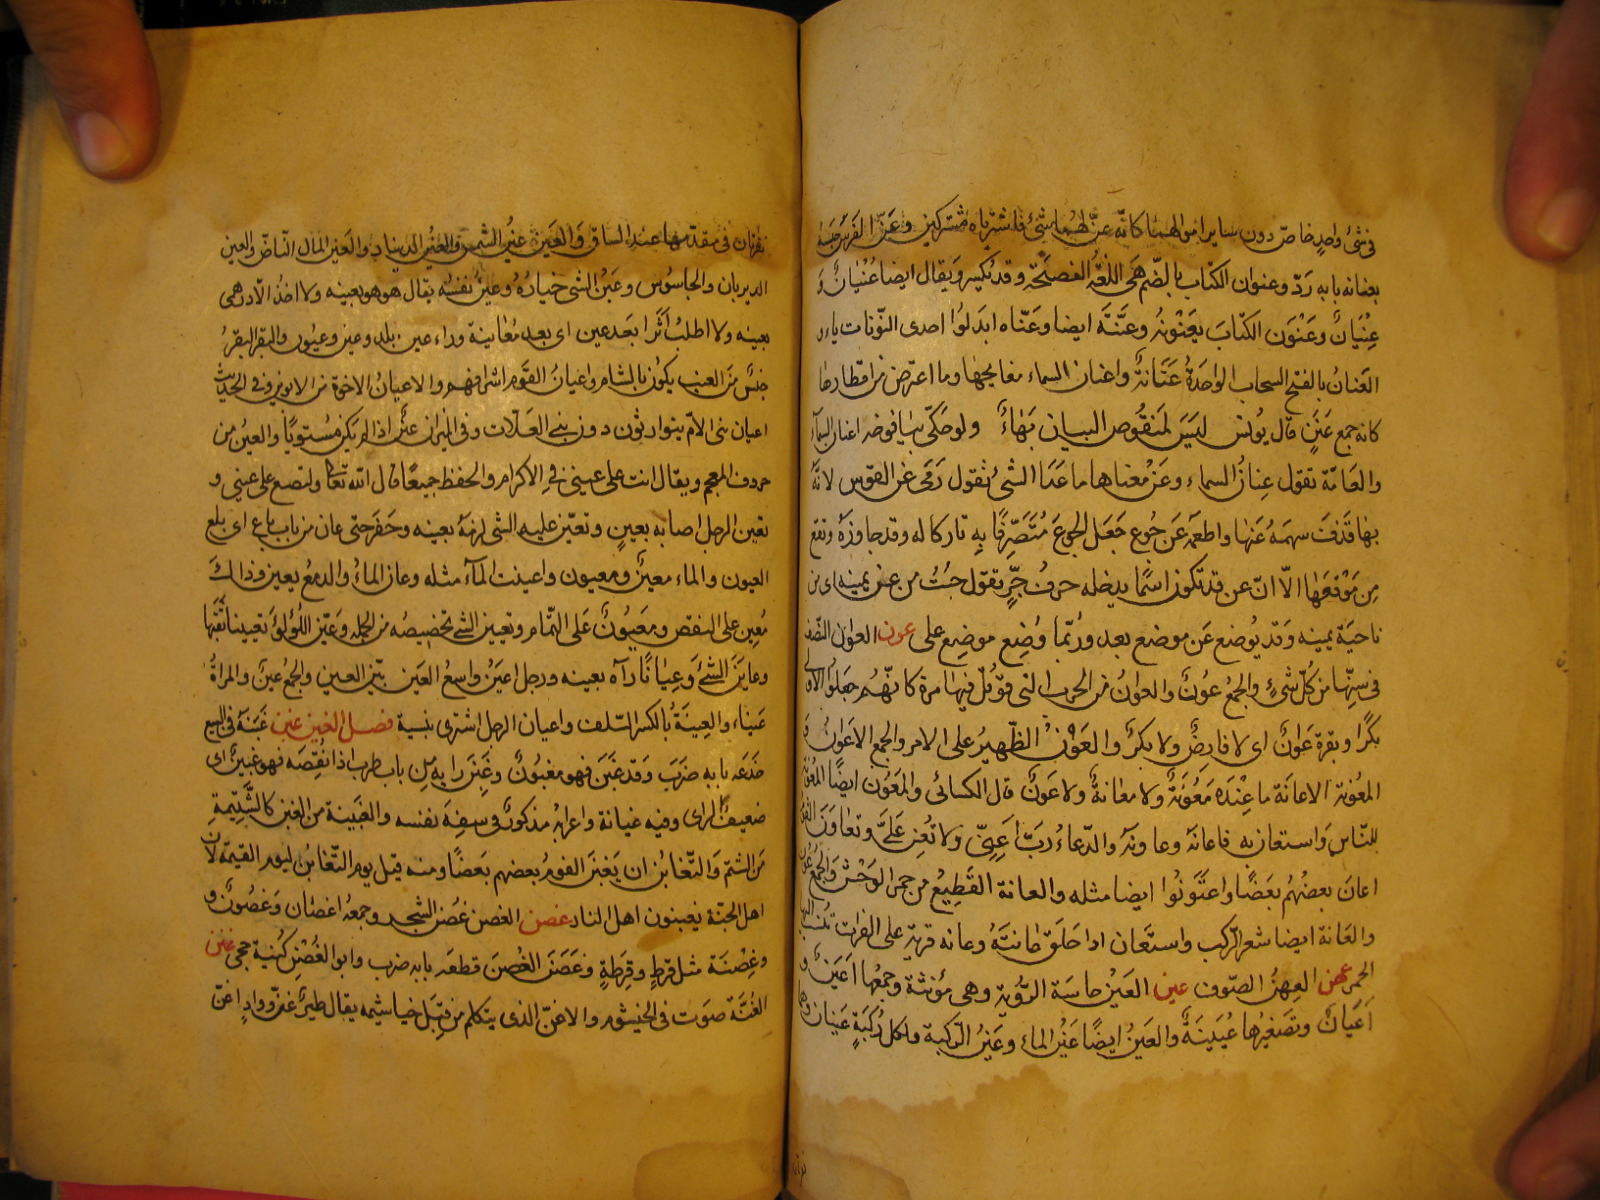 في شئ واحدٍ خاصّ دون ساير اموالهما كانّه عنّ لهما شئ فاشترياه مشتركين وعَنّ الفرس حبسه
بعنانه بابه رَدّ وعنوان الكتاب بالضّم هي اللغة الفصيحة وقد يُكسر ويقال ايضا عُنْيَانٌ وَ
عِنْيَانٌ وعَنْوَن الكتابَ يُعَنْوِنُهُ وعَنَّنَه ايضا وعَنّاه ابدلوا احدى النّونات ياء و
العَنانُ بالفتح السحاب الواحدَةُ عَنَانةٌ واعنان السماء صفايحها وما اعترض من اقطارها
كانه جمع عَنَنٍ قال يونس ليسَ لمَنقُوص البيان بَهَاءٌ ولو حكّ بيافوخه اعنان السماء
والعَامّة تقول عِنانُ السماء وعَنْ معناها ما عَدَا الشئ تقول رَمَى عَن القوس لانّه
بها قَذفَ سهمَهُ عَنها واطعمَه عَن جُوع جَعَل الجوعَ مُنصَرِفًا بِهِ تاركا له وقد جاوزَهُ وتقع
مِن مَوْقعَها الّا انّ عن قد تكون اسمًا يدخله حرفُ جَرٍّ تقول جئتُ من عن يمينه اى من
ناحيَة يمينه وَقد يُوضع عَن موضع بعد ورُبّما وُضِع موضِع على عون العوان النّصف
في سِنّها من كُلّ شئٍ والجمع عُونٌ والعوانُ من الحرب التى قوتل فيها مرة كانّهم جعَلوا الاولى
بكرًا وبقرة عَوانٌ اى لا فارِضٌ ولا بكرٌ والعَوْنُ الظّهيرُ على الامر والجمع الاعوَانُ وَ
المعُونة الاعانَة ما عِنْدَه مَعُونَةٌ ولا معانةٌ ولا عَونٌ قال الكسائى والمَعُون ايضًا المعُونة
للنّاسِ وَاستعان به فاعانَه وعاونَه والدّعاءُ ربّ اَعِنّي ولا تُعِن عَليَّ وتعاونَ القومُ
اعانَ بعضُهُم بَعضًا واعتَوَنُوا ايضا مثله والعانة القَطِيعُ من حمر الوَحش والجمع عُون
والعَانة ايضا شعر الرّكب واستَعان اذا حَلقَ عانتَهُ وعانه قرية على الفرات تُنسب اليها
الخمر عهن العِهنُ الصّوف عين العَيْنُ حاسّة الرّؤية وهى مؤنثة وجمعُها اَعيُنٌ و
اَعيَانٌ وتصَغيرُها عُيَينَةٌ والعَينُ ايضًا عَينُ الماء وعَينُ الرّكبة ولكل رُكبَةٍ عَينان وهما
نقرتان في مقدّمها عند الساق وَالعَينُ عينُ الشمس والعَينُ الدينار والعَين المال النّاضّ والعين
الديدبان والجاسُوس وعَينُ الشى خيارُهُ وعينُ نفسُه يقال هو هو بعينه ولا اخذ الّا درهمى
بعينه ولا اطلبُ أثرا بَعدعين اى بعد مُعاينة وراء عين بلد وعين وعيون والبقر البقرُ
جنسٌ منَ العنب يكون بالشام واعيانُ القَوم اشرافهم والاعيانُ الاخوة من الابوين وفى الحديث
اعيان بنى الامّ يتوارثون دون بنى العَلات وفى الميزان عَينٌ اذا لم يكن مُستويًا والعينُ من
حروف المعجم ويقال انت على عينى في الاكرام والحفظ جميعًا قال الله تعالى ولتصنع على عينى و
تعين الرجل اصابه بعينٍ وتعيّن عليه الشى لزمَهُ بعينه وحَفرَ حتى عان من باب باع اى بلغ
العيون والماء معينٌ ومعيون واعينت المآء مثله وعان الماءُ والدمعُ يعين وذالك
مُعِين على النقص ومعيُونٌ عَلى التّمام وتعيين الشئ تخصيصُه من الجملة وعَيّن اللُؤلُؤ تعيينا ثقَبها
وعايَنَ الشئَ وَعِيَانًا رآه بعينه ورجل اعيَنُ واسِعُ العَين بيّن العين والجمعُ عينٌ والمراةُ
عَيناء والعِينَةُ بالكسر السّلف واعيان الرجل اشترى بنسيئة فصل الغين غبن غَبَنَهُ فى البيع
خدَعَه بابه ضرَبَ وَقد غبَنَ فهو مغبُونٌ وغبِنَ رايه من باب طرب اذا نُقِصَه فهو غبينٌ اى
ضعيفُ الراى وفيه غبانة واعرابه مذكورٌ فى سفِهَ نفسه والغبينة من الغبن كالشّتيمةِ
مَن الشتم وَالتّغابُن ان يَغبنَ القومُ بعضهم بَعضًا ومنه قيل يوم التّغابُن ليوم القيمة لانّ
اهل الجنّة يغبنون اهل النار غصن الغصن غُصْنُ الشجر وجمعهُ اغصان وغصُونٌ و
وغِصْنَة مثل قرطٍ وقِرَطةٍ وغَصَنَ الغُصنَ قطعَه بابه ضرب وابو الغُصْنِ كُنية جحى غنن
الغُنّةُ صَوت فى الخيشوم والاغنّ الذى يتكلم من قِبَل خياشيمه يقال طيرٌ اغنّ ووادٍ اغنّ